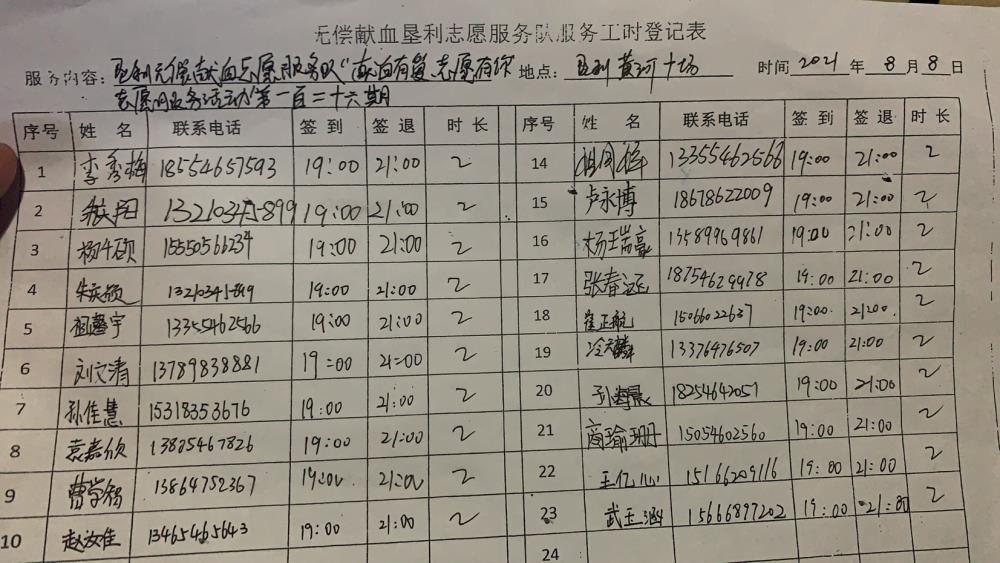 无偿献血垦利志愿服务队服务工时登记表
服务内容: 垦利无偿献血志愿服务队"献血有爱、志愿有你 地点: 垦利黄河广场 时间 2021 年 8 月 8 日
志愿服务活动"第一百二十六期
序号 姓 名 联系电话 签 到 签 退 时 长 序号 姓 名 联系电话 签 到 签 退 时 长
1 李秀梅 18554657593 19:00 21:00 2 14 13355462566 19:00 21:00 2
2 19:00 21:00 2 15 卢永博 18678622009 19:00 21:00 2
3 15550566234 19:00 21:00 2 16 杨瑞豪 13589969861 19:00 21:00 2
4 19:00 21:00 2 17 张春远 18754629978 19:00 21:00 2
5 祖馨宇 13355462566 19:00 21:00 2 18 崔正航 15066022637 19:00 21:00 2
6 刘文清 13789838881 19:00 21:00 2 19 13376476507 19:00 21:00 2
7 孙佳慧 15318353676 19:00 21:00 2 20 18254642057 19:00 21:00 2
8 袁嘉欣 13875467826 19:00 21:00 2 21 商瑜珊 15054602560 19:00 21:00 2
9 曹学智 13864752367 19:00 21:00 2 22 王亿心 15166209116 19:00 21:00 2
10 赵汝佳 13465465643 19:00 21:00 2 23 武玉涵 15666897202 19:00 21:00 2
24